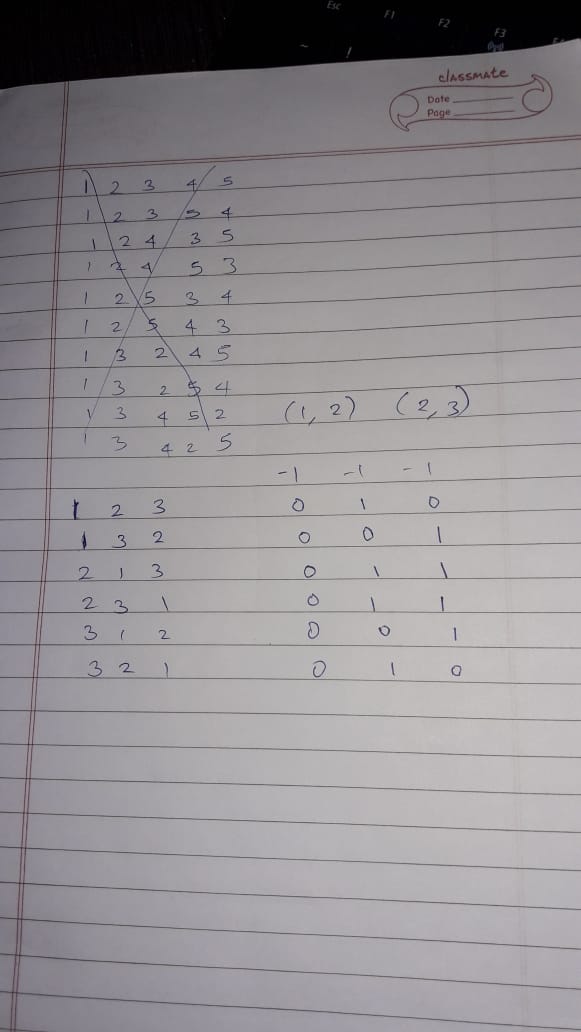 Esc F1 F2 F3
classmate
Date
Page
1 2 3 4 5
1 2 3 5 4
1 2 4 3 5
1 2 4 5 3
1 2 5 3 4
1 2 5 4 3
1 3 2 4 5
1 3 2 5 4
1 3 4 5 2 (1, 2) (2, 3)
1 3 4 2 5
-1 -1 -1
1 2 3 0 1 0
1 3 2 0 0 1
2 1 3 0 1 1
2 3 1 0 1 1
3 1 2 0 0 1
3 2 1 0 1 0